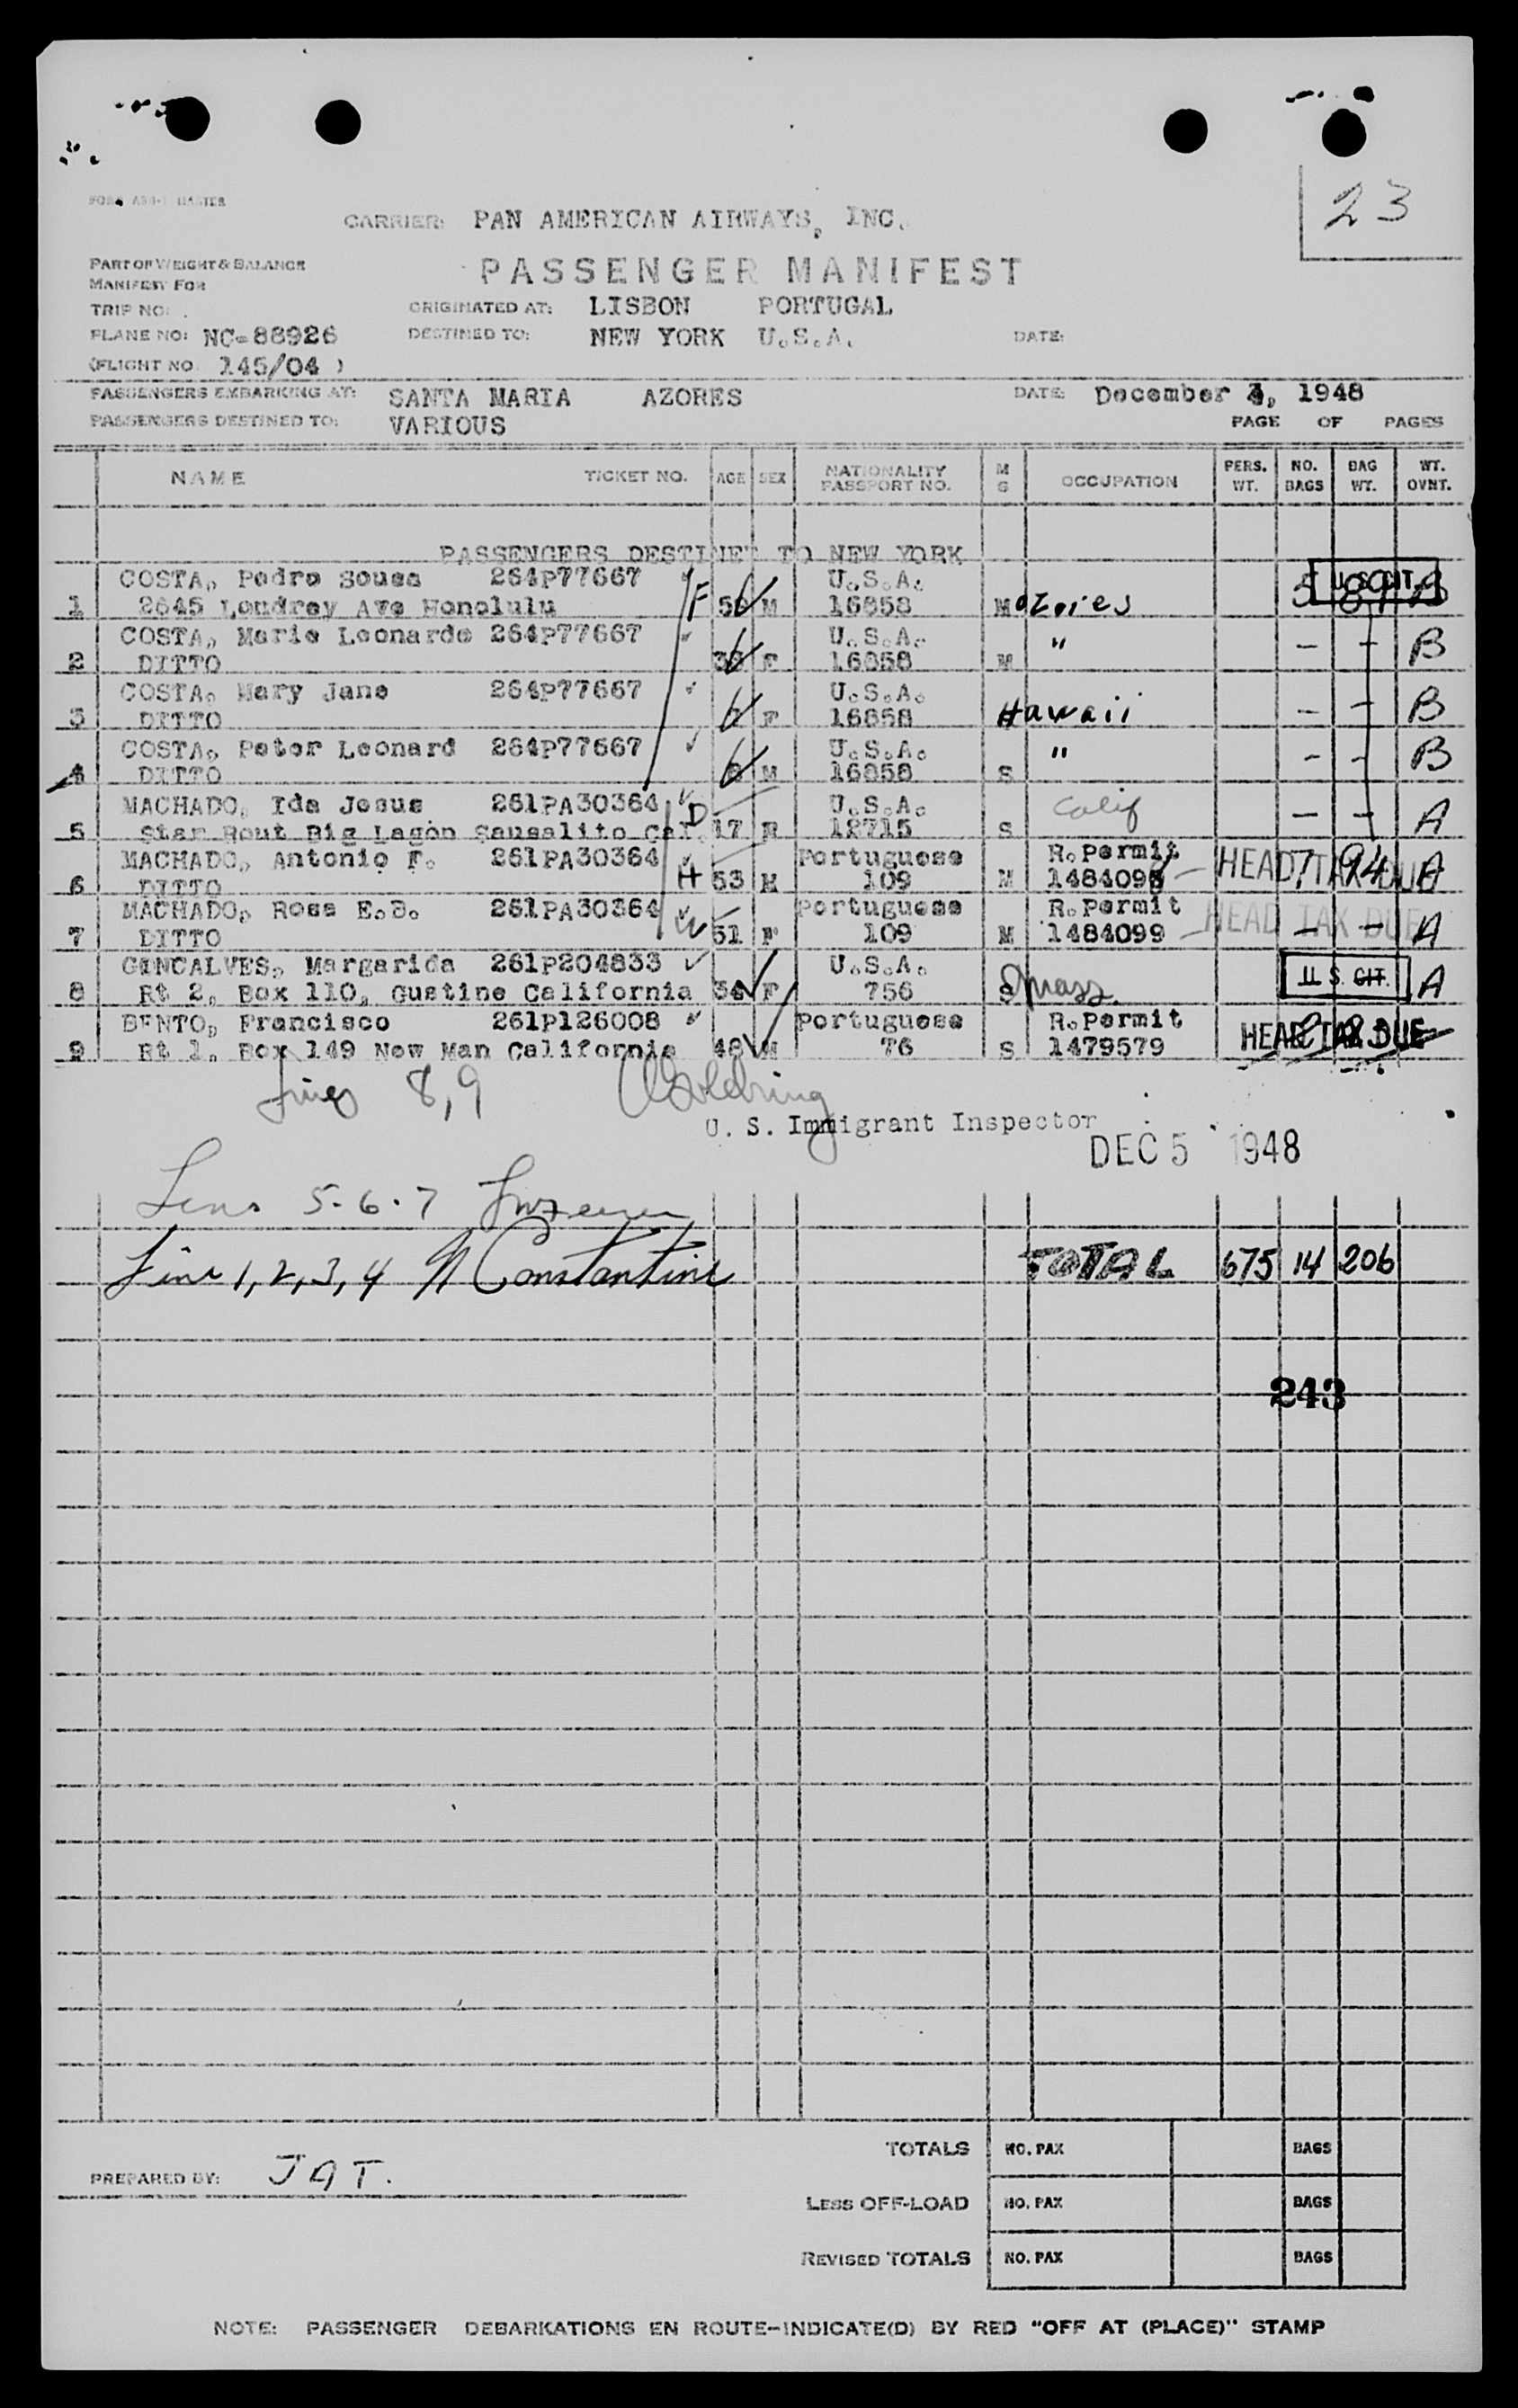 23
FORM ASB-1 MASTER
CARRIER: PAN AMERICAN AIRWAYS, INC.
PART OF WEIGHT & BALANCE
MANIFEST FOR
PASSENGER MANIFEST
TRIP NO:
ORIGINATED AT: LISBON PORTUGAL
PLANE NO: NC-88926
DESTINED TO: NEW YORK U.S.A.
DATE:
(FLIGHT NO. 145/04 )
PASSENGERS EMBARKING AT: SANTA MARIA AZORES
DATE: December 4, 1948
PASSENGERS DESTINED TO: VARIOUS
PAGE OF PAGES
NAME TICKET NO. AGE SEX NATIONALITY PASSPORT NO. M S OCCUPATION PERS. WT. NO. BAGS BAG WT. WT. OVNT.
PASSENGERS DESTINET TO NEW YORK
COSTA, Pedro Sousa 264P77667 U.S.A. U.S. CIT.
1 2645 Loudrey Ave Honolulu F M 16858 M azories
COSTA, Maria Leonarda 264P77667 U.S.A. "
2 DITTO F 16858 M - - B
COSTA, Mary Jane 264P77667 U.S.A.
3 DITTO F 16858 Hawaii - - B
COSTA, Peter Leonard 264P77667 U.S.A. "
4 DITTO M 16858 S - - B
MACHADO, Ida Jesus 261PA30364 D U.S.A. Calif
5 Star Rout Big Lagon Sausalito Cal. 17 F 12715 S - - A
MACHADO, Antonio F. 261PA30364 Portuguese R.Permit
6 DITTO H 53 M 109 M 1484098 HEAD TAX DUE 7 94 A
MACHADO, Rosa E.B. 261PA30364 Portuguese R.Permit
7 DITTO W 51 F 109 M 1484099 HEAD TAX DUE - - A
GONCALVES, Margarida 261P204833 U.S.A.
8 Rt 2, Box 110, Gustine California 34 F 756 S Mass. U.S. CIT. A
BENTO, Francisco 261P126008 Portuguese R.Permit
9 Rt 1, Box 149 New Man California 48 M 76 S 1479579 HEAD TAX DUE
Lines 8,9
U. S. Immigrant Inspector
DEC 5 1948
Lines 5-6-7
Line 1,2,3,4 N Constantine
TOTAL 675 14 206
243
TOTALS NO. PAX BAGS
PREPARED BY: JAT.
LESS OFF-LOAD NO. PAX BAGS
REVISED TOTALS NO. PAX BAGS
NOTE: PASSENGER DEBARKATIONS EN ROUTE-INDICATE(D) BY RED "OFF AT (PLACE)" STAMP